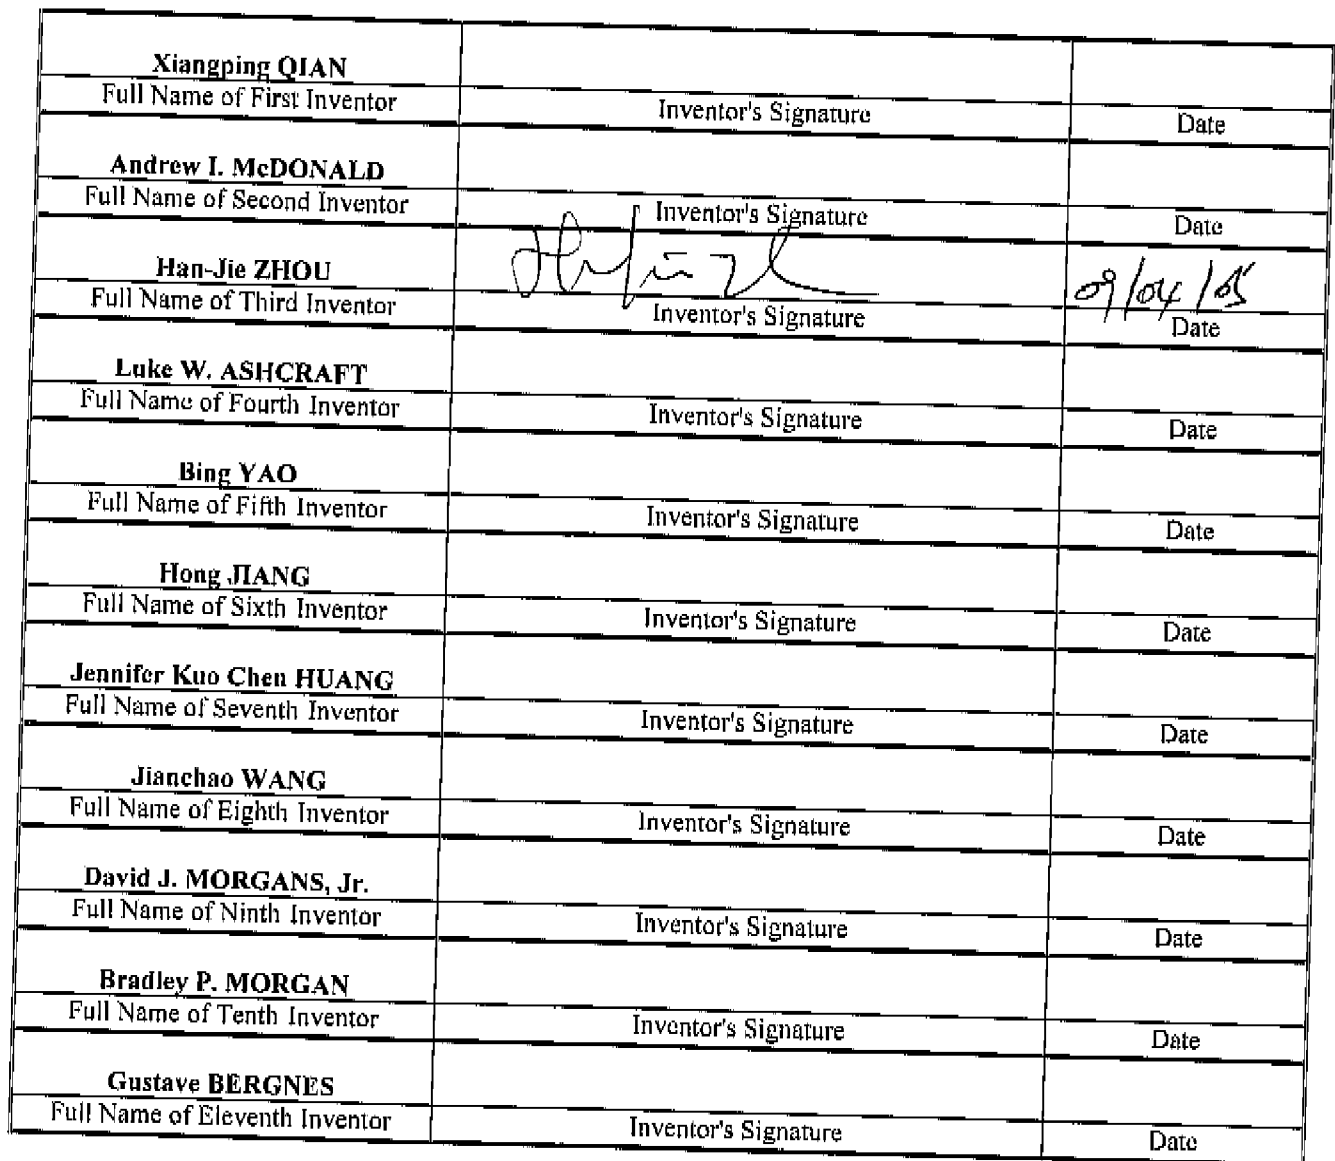 Xiangping QIAN
Full Name of First Inventor Inventor's Signature Date
Andrew I. McDONALD
Full Name of Second Inventor Inventor's Signature Date
Han-Jie ZHOU 09/04/05
Full Name of Third Inventor Inventor's Signature Date
Luke W. ASHCRAFT
Full Name of Fourth Inventor Inventor's Signature Date
Bing YAO
Full Name of Fifth Inventor Inventor's Signature Date
Hong JIANG
Full Name of Sixth Inventor Inventor's Signature Date
Jennifer Kuo Chen HUANG
Full Name of Seventh Inventor Inventor's Signature Date
Jianchao WANG
Full Name of Eighth Inventor Inventor's Signature Date
David J. MORGANS, Jr.
Full Name of Ninth Inventor Inventor's Signature Date
Bradley P. MORGAN
Full Name of Tenth Inventor Inventor's Signature Date
Gustave BERGNES
Full Name of Eleventh Inventor Inventor's Signature Date